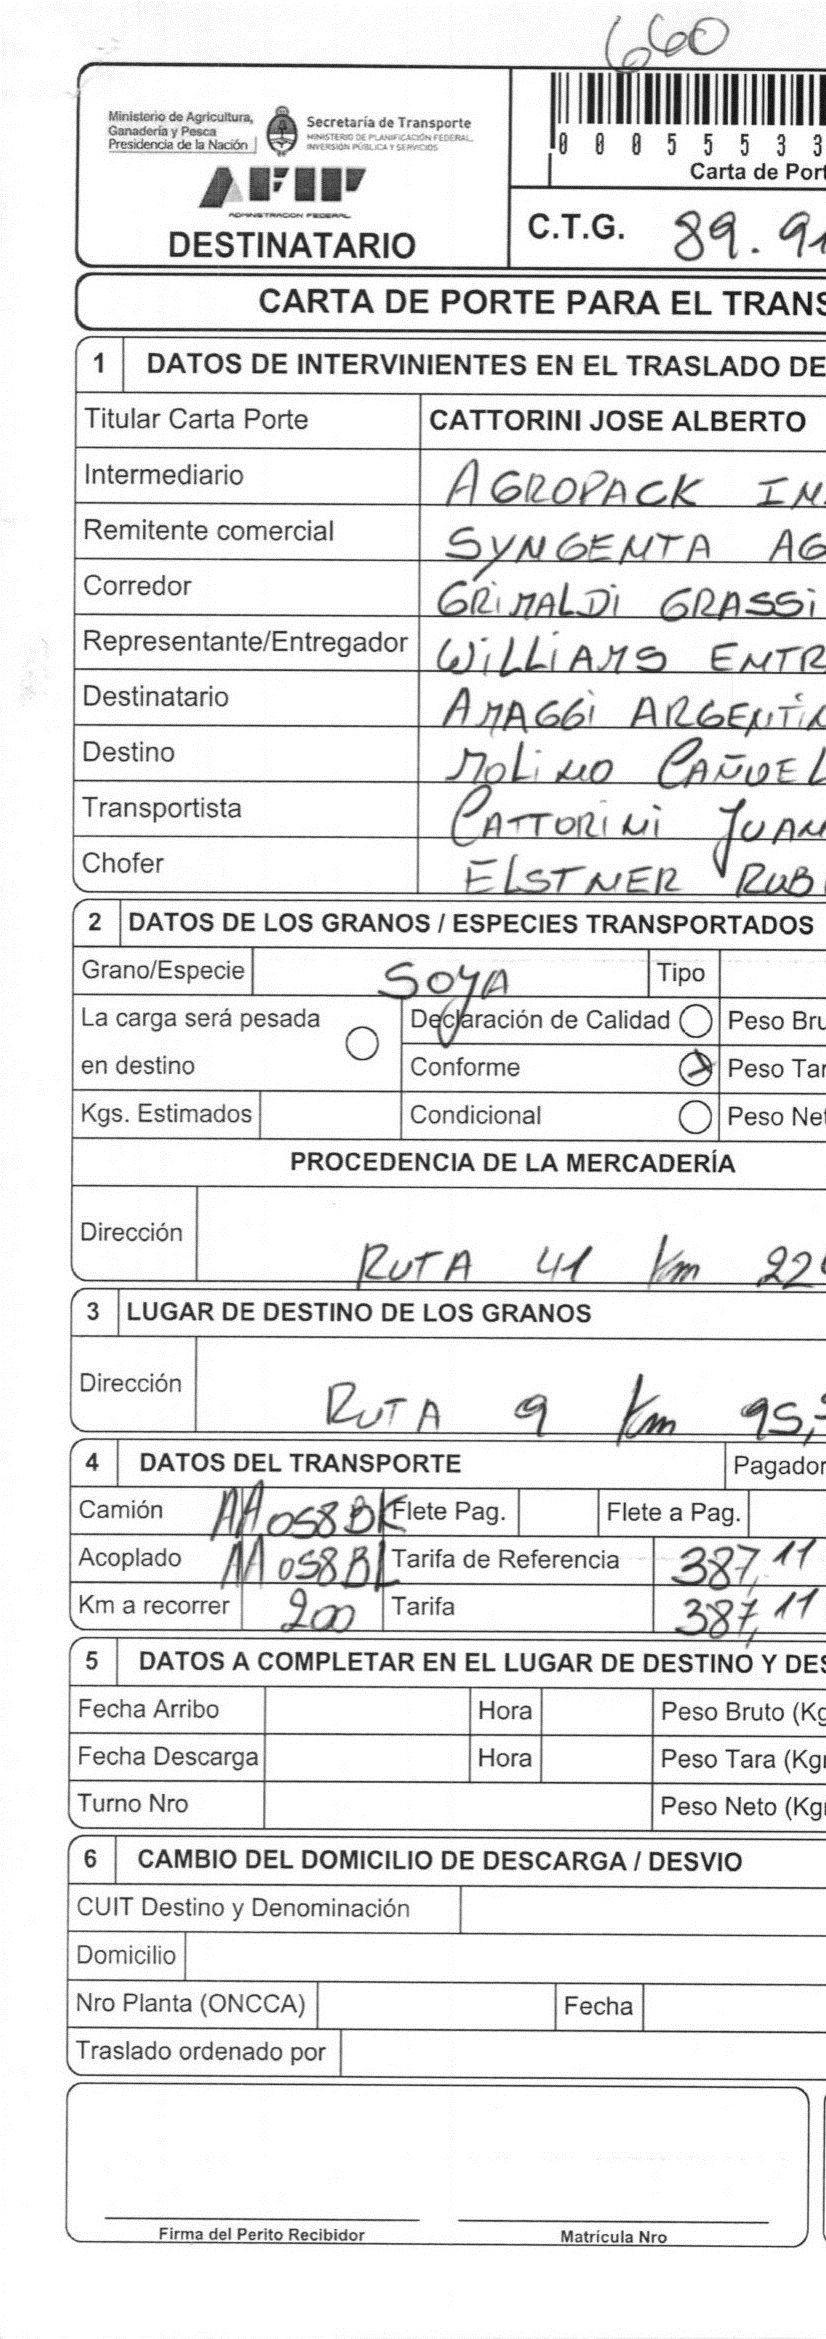 660
Ministerio de Agricultura,
Ganadería y Pesca
Presidencia de la Nación
Secretaría de Transporte
MINISTERIO DE PLANIFICACIÓN FEDERAL,
INVERSIÓN PÚBLICA Y SERVICIOS
AFIP
ADMINISTRACION FEDERAL
DESTINATARIO
0 0 0 5 5 5 3 3
Carta de Port
C.T.G. 89.91
CARTA DE PORTE PARA EL TRANS
1 DATOS DE INTERVINIENTES EN EL TRASLADO DE
Titular Carta Porte CATTORINI JOSE ALBERTO
Intermediario AGROPACK IN
Remitente comercial SYNGENTA AG
Corredor GRIMALDI GRASSI
Representante/Entregador WILLIAMS ENTR
Destinatario AMAGGI ARGENTIN
Destino MOLINO CAÑUEL
Transportista CATTORINI JUAN
Chofer ELSTNER RUB
2 DATOS DE LOS GRANOS / ESPECIES TRANSPORTADOS
Grano/Especie SOYA Tipo
La carga será pesada en destino
Declaración de Calidad Peso Bru
Conforme Peso Tar
Kgs. Estimados Condicional Peso Net
PROCEDENCIA DE LA MERCADERÍA
Dirección RUTA 41 Km 22
3 LUGAR DE DESTINO DE LOS GRANOS
Dirección RUTA 9 Km 95,
4 DATOS DEL TRANSPORTE Pagador
Camión AA058BK Flete Pag. Flete a Pag.
Acoplado AA058BL Tarifa de Referencia 387,11
Km a recorrer 200 Tarifa 387,11
5 DATOS A COMPLETAR EN EL LUGAR DE DESTINO Y DES
Fecha Arribo Hora Peso Bruto (Kg
Fecha Descarga Hora Peso Tara (Kgr
Turno Nro Peso Neto (Kgr
6 CAMBIO DEL DOMICILIO DE DESCARGA / DESVIO
CUIT Destino y Denominación
Domicilio
Nro Planta (ONCCA) Fecha
Traslado ordenado por
Firma del Perito Recibidor Matrícula Nro